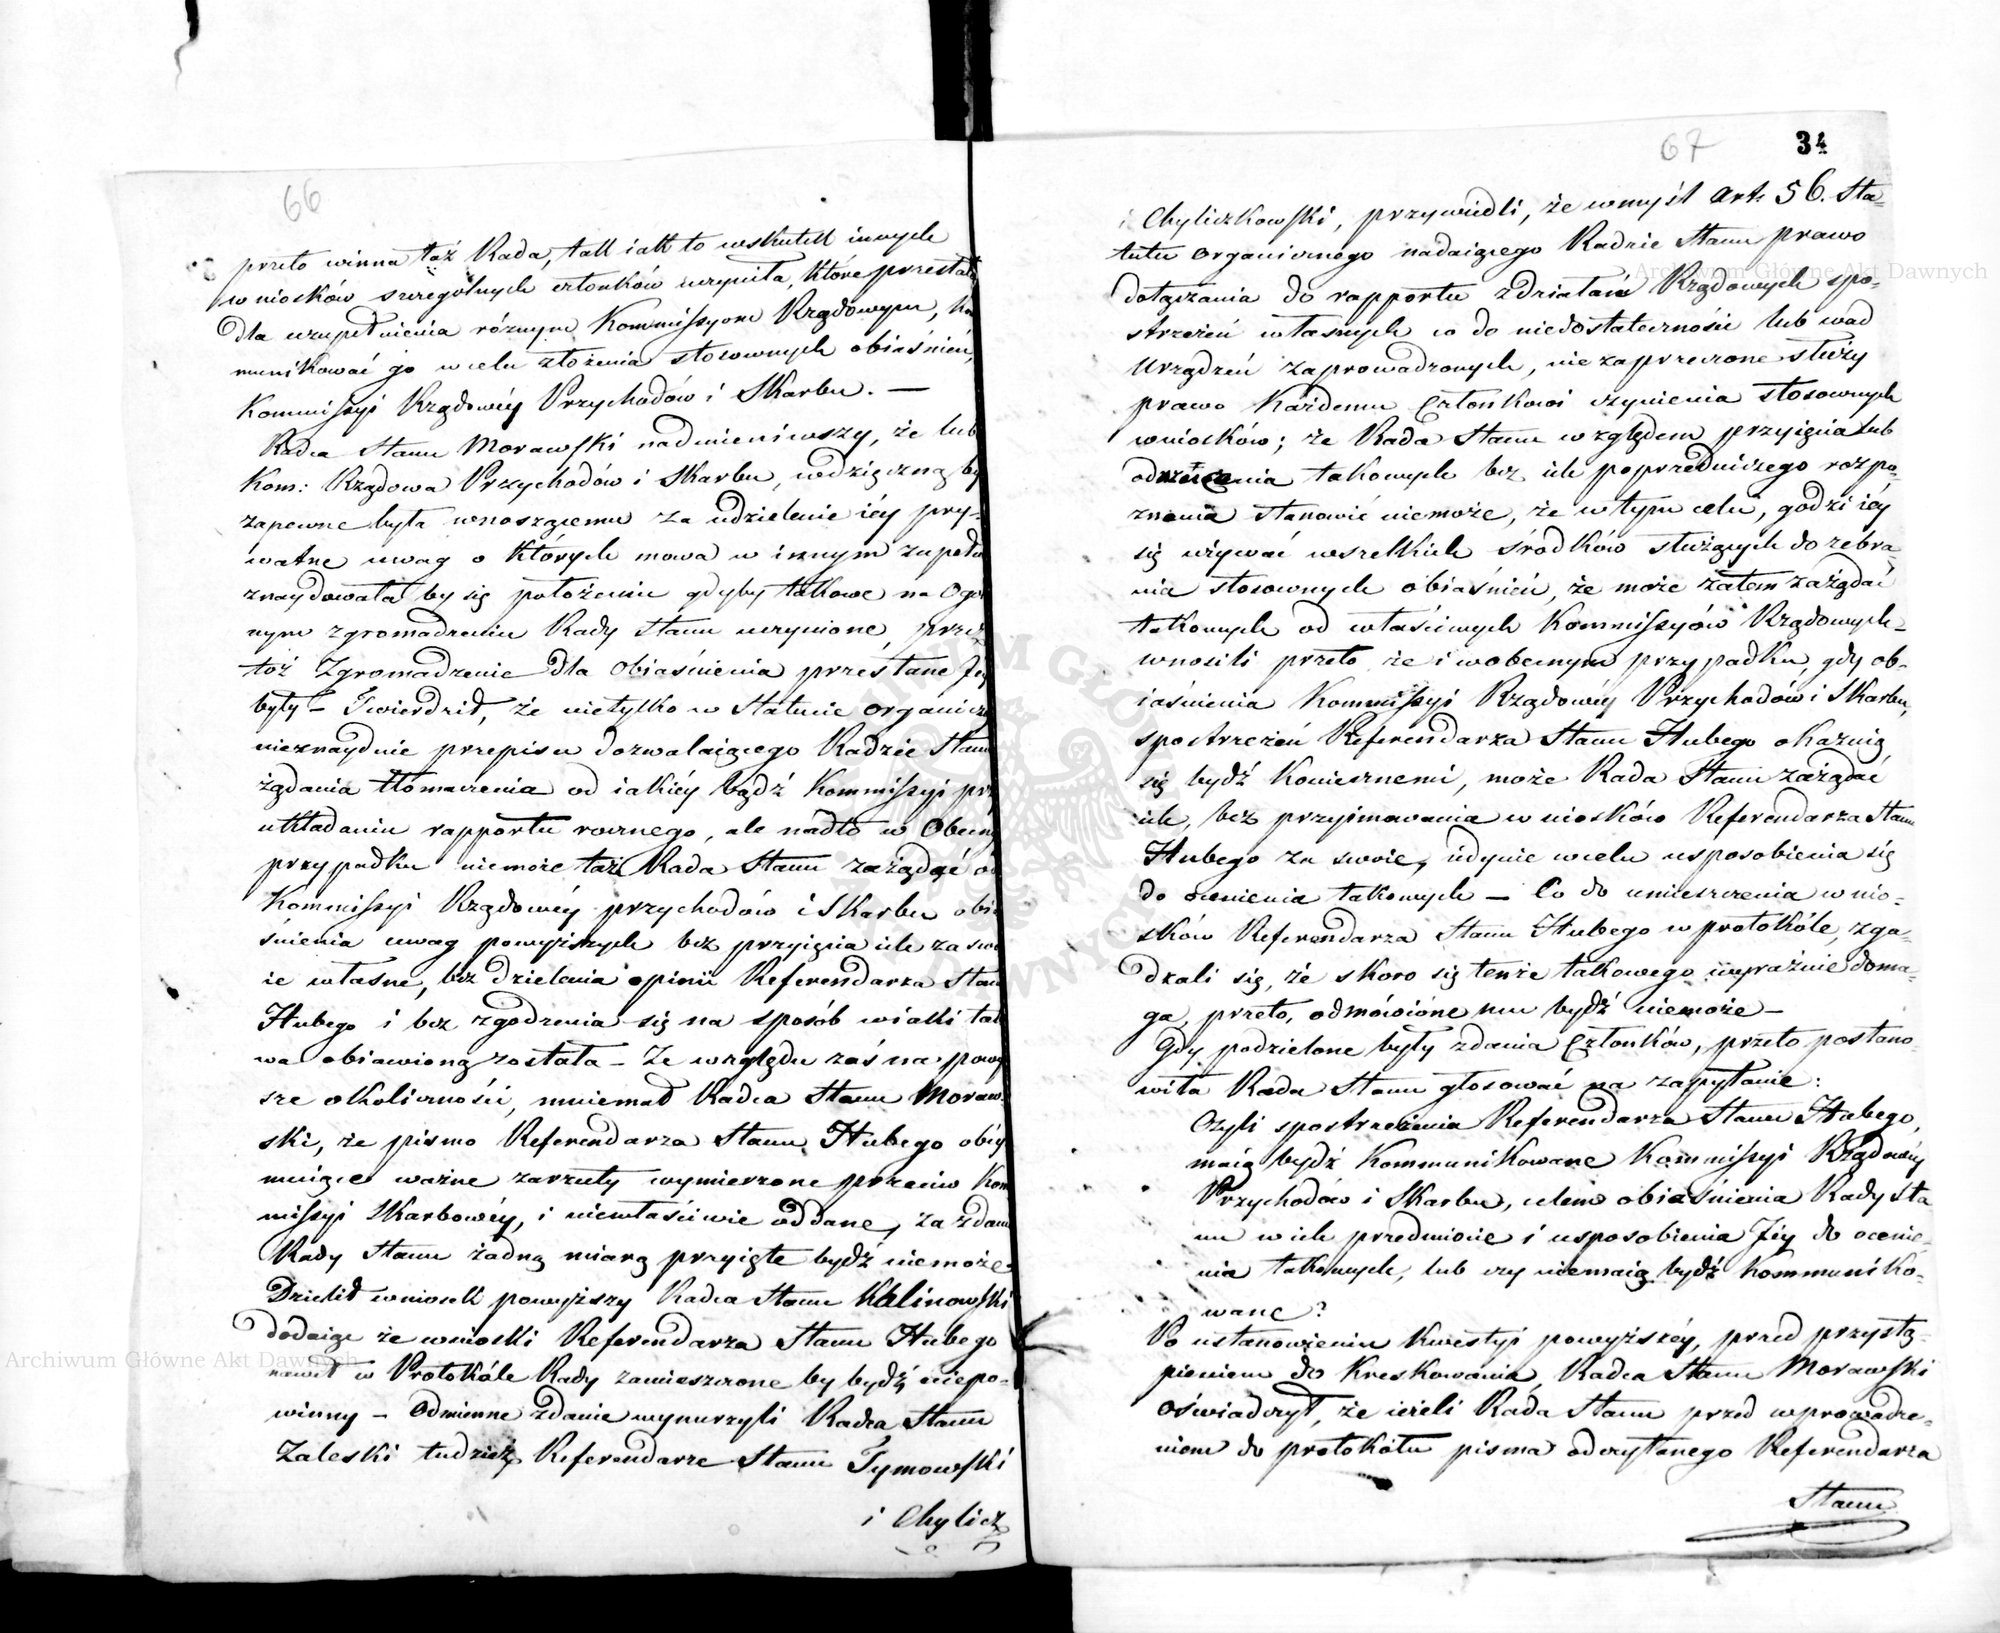 66
przeto winna taż Rada, tak iak to wskutek innych
wniosków szczególnych członków uczyniła, które przesłała
dla uzupełnienia różnym Kommissyom Rządowym, ko
munikować go w celu złożenia stosownych obiaśnień,
Kommissyi Rządowéy Przychodów i Skarbu. —
Radca Stanu Morawski nadmieniwszy, że lub
Kom: Rządowa Przychodów i Skarbu, wdzięczną by
zapewne była wnoszącemu za udzielenie iéy pry-
watne uwag o których mowa w innym zupełn
znaydowała by się położeniu gdyby takowe na Ogól
nym zgromadzeniu Rady Stanu uczynione, przez
toż Zgromadzenie dla obiaśnienia przesłane Jey
były — Twierdził, że nietylko w Statucie organiczn
nieznaydnie przepisu dozwalaiącego Radzie Stanu
żądania tłómaczenia od iakiéy bądź Kommissyi prz
układaniu rapportu rocznego, ale nadto w Obecny
przypadku niemoże taż Rada Stanu zażądać od
Kommissyi Rządowéy przychodów i Skarbu obia
śnienia uwag powyższych bez przyięcia ich za swo
ie własne, bez dzielenia opinii Referendarza Stanu
Hubego i bez zgodzenia się na sposób w iaki tako
wa obiawioną została — Ze względu zaś na powy
sze okoliczności, mniemał Radca Stanu Moraw
ski, że pismo Referendarza Stanu Hubego obéy
muiące ważne zarzuty wymierzone przeciw Kom
missyi Skarbowéy, i niewłaściwie oddane, za zdan
Rady Stanu żadną miarą przyięte bydź niemoże
Dzielił wniosek powyższy Radca Stanu Kalinowski
dodaiąc że wnioski Referendarza Stanu Hubego
nawet w Protokóle Rady zamieszczone by bydź niepo-
winny — Odmienne zdanie wynurzyli Radca Stanu
Zaleski tudzież Referendarze Stanu Tymowski
i Chylicz
67
34
i Chyliczkowski, przywiedli, że w myśl art. 56. Sta-
tutu organicznego nadaiącego Radzie Stanu prawo
dołączania do rapportu z działań Rządowych spo-
strzeżeń własnych co do niedostateczności lub wad
Urządzeń zaprowadzonych, niezaprzeczone służy
prawo każdemu Członkowi czynienia stosownych
wniosków; że Rada Stanu względem przyięcia lub
odrzucenia takowych bez ich poprzedniczego rozpo-
znania stanowić niemoże, że w tym celu, godzi iéy
się używać wszelkich środków służących do zebra-
nia stosownych obiaśnień, że może zatem zażądać
takowych od właściwych Kommissyów Rządowych —
wnosili przeto że i w obecnym przypadku, gdy ob-
iaśnienia Kommissyi Rządowéy Przychodów i Skarbu,
spostrzeżeń Referendarza Stanu Hubego okazuią
się bydź koniecznemi, może Rada Stanu zażądać
ich, bez przyimowania wniosków Referendarza Stanu
Hubego za swoie, iedynie w celu usposobienia się
do ocenienia takowych — Co do umieszczenia wnio-
sków Referendarza Stanu Hubego w protokóle, zga-
dzali się, że skoro się tenże takowego wyraźnie doma-
ga, przeto, odmówione mu bydź niemoże —
Gdy podzielone były zdania Członków, przeto postano-
wiła Rada Stanu głosować na zapytanie:
Czyli spostrzeżenia Referendarza Stanu Hubego,
maią bydź Kommunikowane Kommissyi Rządowéy
Przychodów i Skarbu, celem obiaśnienia Rady Sta
nu w ich przedmiocie i usposobienia Jéy do ocenie-
nia takowych, lub czy niemaią bydź Kommuniko-
wane?
Po ustanowieniu kwestyi powyższéy, przed przystą-
pieniem do Kreskowania, Radca Stanu Morawski
oświadczył, że ieżeli Rada Stanu przed wprowadze-
niem do protokółu pisma odczytanego Referendarza
Stanu
Archiwum Główne Akt Dawnych
Archiwum Główne Akt Dawnych